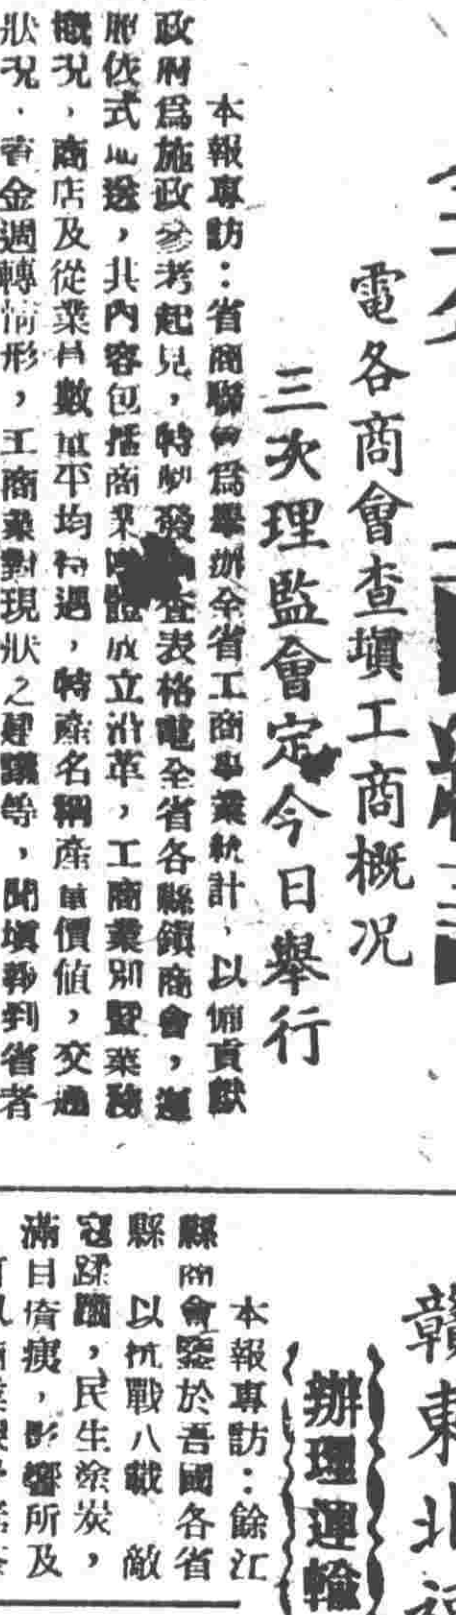 電各商會查塡工商概況
三次理監會定今日舉行
本報專訪：省商聯會爲舉辦全省工商事業統計，以備貢獻
政府爲施政參考起見，特製發調查表格電全省各縣鎮商會，運
照依式塡送，共內容包括商業團體成立沿革，工商業別暨業務
槪況，商店及從業員數量平均待遇，特產名稱產量價値，交通
狀況，資金週轉情形，工商業對現狀之建議等，聞塡報到省者
贛東北
辦理運輸
本報專訪：餘江
縣商會鑒於吾國各省
縣 以抗戰八載 敵
寇蹂躪，民生塗炭，
滿目瘡痍，影響所及